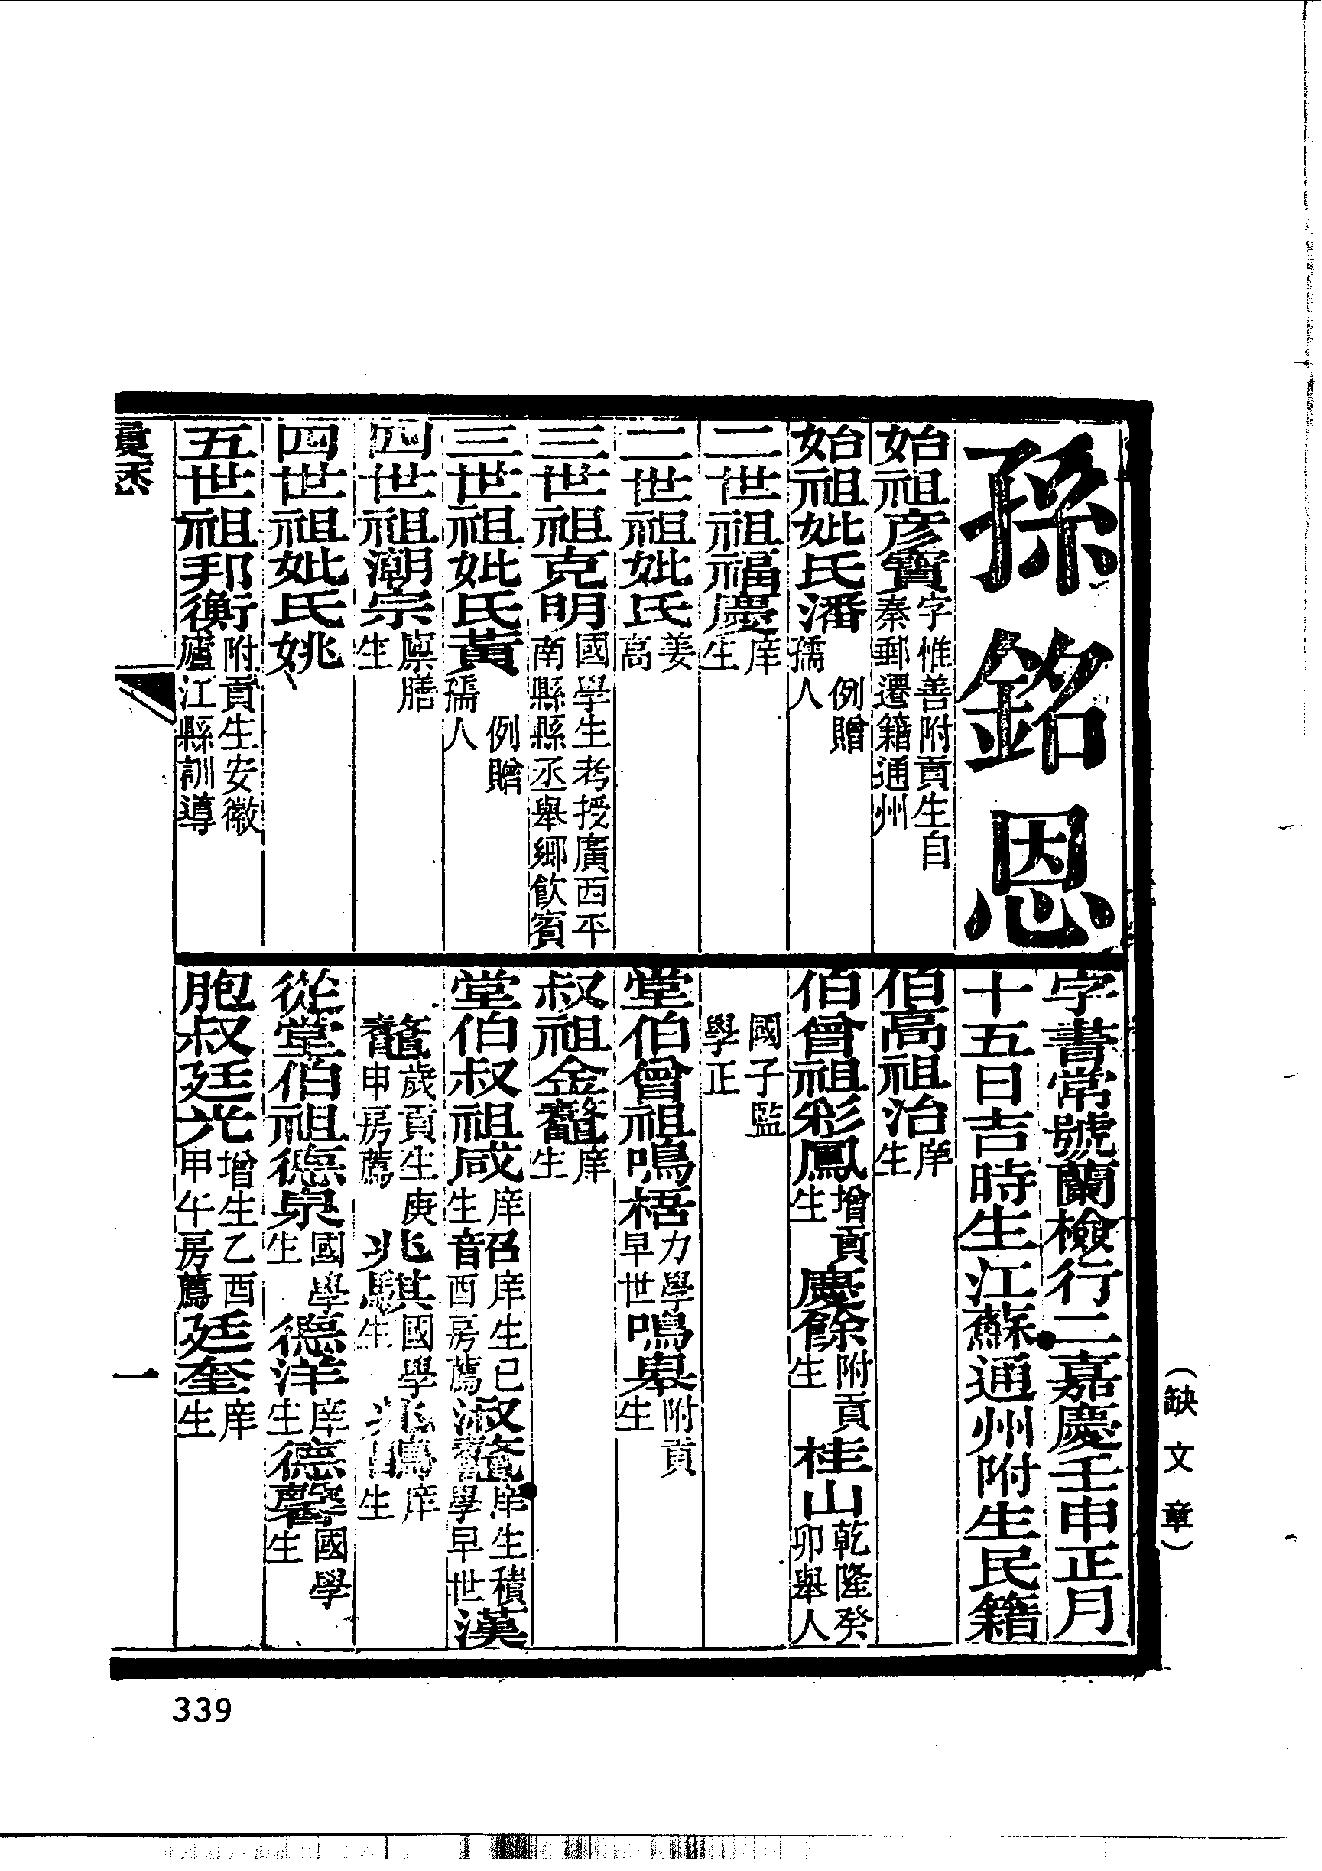 孫銘恩
字書常號蘭檢行二嘉慶壬申正月
十五日吉時生江蘇通州附生民籍
始祖彥寶字惟善附貢生自秦郵遷籍通州
始祖妣氏潘例贈孺人
二世祖福慶庠生
二世祖妣氏姜高
三世祖克明國學生考授廣西平南縣縣丞舉鄉飲賓
三世祖妣氏黃例贈孺人
四世祖潮宗廩膳生
四世祖妣氏姚
五世祖邦衡附貢生安徽廬江縣訓導
伯高祖治庠生
伯曾祖彩鳳增貢生慶餘附貢生桂山乾隆癸卯舉人
國子監學正
堂伯曾祖鳴梧力學早世鳴皋附貢生
叔祖金鼇庠生
堂伯叔祖咸庠生韶庠生己酉房薦淑鼇庠生積學早世漢
鼇歲貢生庚申房薦兆騏國學生兆鳳庠生
從堂伯祖德泉國學生德洋庠生德馨國學生
胞叔廷光增生乙酉甲午房薦廷奎庠生
一
(缺文章)
339